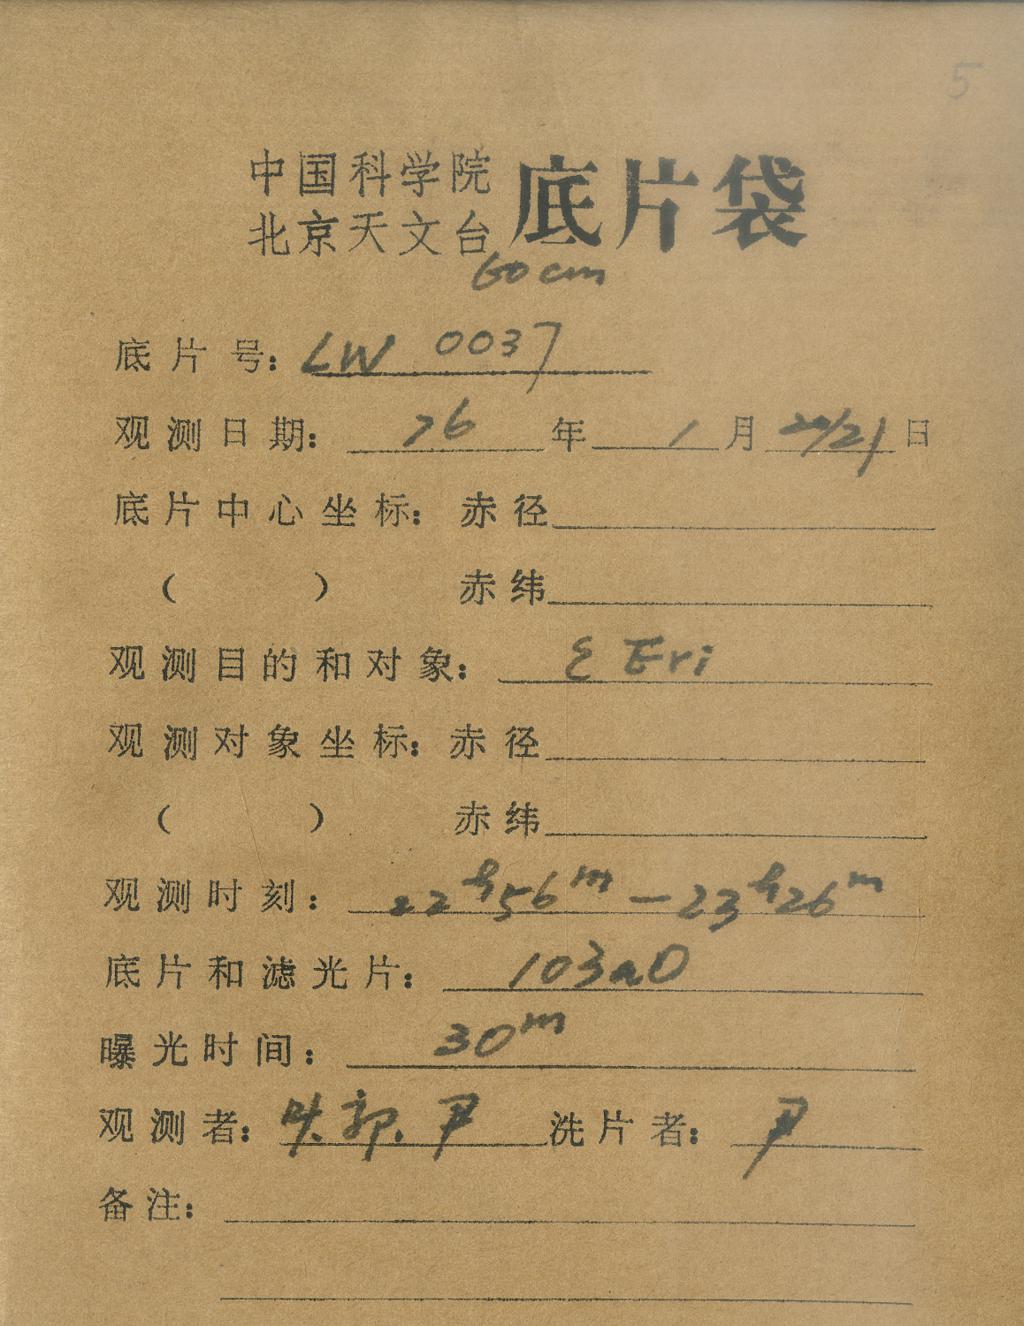 5
中国科学院
北京天文台 底片袋
60cm
底片号: LW 0037
观测日期: 76年1月20/21日
底片中心坐标: 赤径
( ) 赤纬
观测目的和对象: ε Eri
观测对象坐标: 赤径
( ) 赤纬
观测时刻: 22h56m—23h26m
底片和滤光片: 103aO
曝光时间: 30m
观测者: 郭、尹 洗片者: 尹
备注: